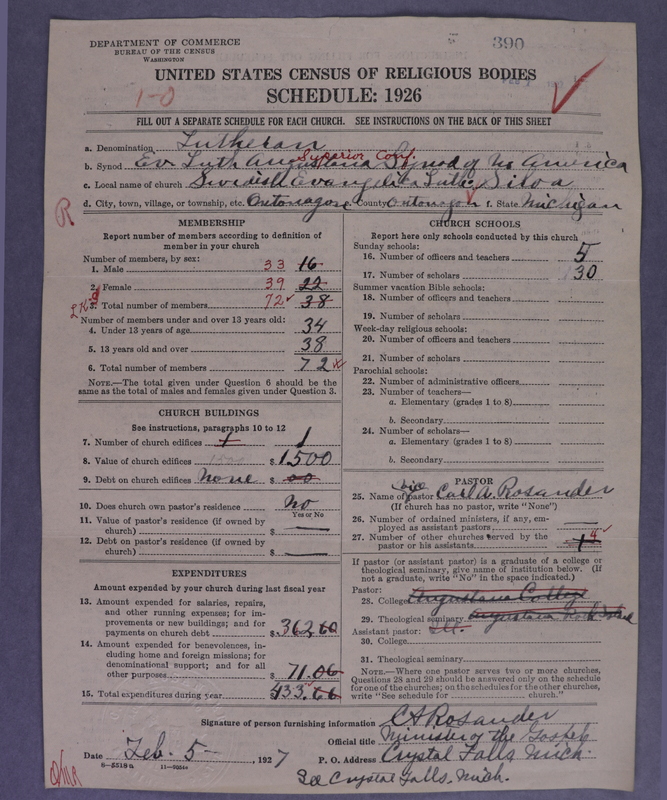 DEPARTMENT OF COMMERCE
BUREAU OF THE CENSUS
WASHINGTON
390
UNITED STATES CENSUS OF RELIGIOUS BODIES
1-0
SCHEDULE: 1926
FILL OUT A SEPARATE SCHEDULE FOR EACH CHURCH. SEE INSTRUCTIONS ON THE BACK OF THIS SHEET
a. Denomination Lutheran
Superior Conf.
b. Synod Ev. Luth Augustana Synod of N. America
c. Local name of church Swedish Evangelic Luth. Siloa
d. City, town, village, or township, etc. Ontonagon County Ontonagon f. State Michigan
R
MEMBERSHIP
Report number of members according to definition of
member in your church
Number of members, by sex:
1. Male 33 16
2. Female 39 22
3. Total number of members 72 38
Number of members under and over 13 years old:
4. Under 13 years of age 34
5. 13 years old and over 38
6. Total number of members 72
NOTE.—The total given under Question 6 should be
same as the total of males and females given under Question 3.
CHURCH BUILDINGS
See instructions, paragraphs 10 to 12
7. Number of church edifices 1 1
8. Value of church edifices 1500 $1500
9. Debt on church edifices None $00
10. Does church own pastor's residence No
Yes or No
11. Value of pastor's residence (if owned by
church) $
12. Debt on pastor's residence (if owned by
church) $
EXPENDITURES
Amount expended by your church during last fiscal year
13. Amount expended for salaries, repairs,
and other running expenses; for im-
provements or new buildings; and for
payments on church debt $362.60
14. Amount expended for benevolences, in-
cluding home and foreign missions; for
denominational support; and for all
other purposes $71.06
15. Total expenditures during year $433.66
CHURCH SCHOOLS
Report here only schools conducted by this church
Sunday schools:
16. Number of officers and teachers 5
17. Number of scholars 30
Summer vacation Bible schools:
18. Number of officers and teachers
19. Number of scholars
Week-day religious schools:
20. Number of officers and teachers
21. Number of scholars
Parochial schools:
22. Number of administrative officers
23. Number of teachers—
a. Elementary (grades 1 to 8)
b. Secondary
24. Number of scholars—
a. Elementary (grades 1 to 8)
b. Secondary
PASTOR
25. Name of vice pastor Carl A. Rosander
(If church has no pastor, write "None")
26. Number of ordained ministers, if any, em-
ployed as assistant pastors
27. Number of other churches served by the
pastor or his assistants 1 4
If pastor (or assistant pastor) is a graduate of a college or
theological seminary, give name of institution below. (If
not a graduate, write "No" in the space indicated.)
Pastor:
28. College Augustana College
29. Theological seminary Augustana Rock Island
Assistant pastor: Ill.
30. College
31. Theological seminary
NOTE.—Where one pastor serves two or more churches,
Questions 28 and 29 should be answered only on the schedule
for one of the churches; on the schedules for the other churches,
write "See schedule for church."
Signature of person furnishing information CA Rosander
Official title Minister of the Gospels
Date Feb. 5, 1927 P. O. Address Crystal Falls Mich.
6—5518a 11—90544
See Crystal Falls, Mich.